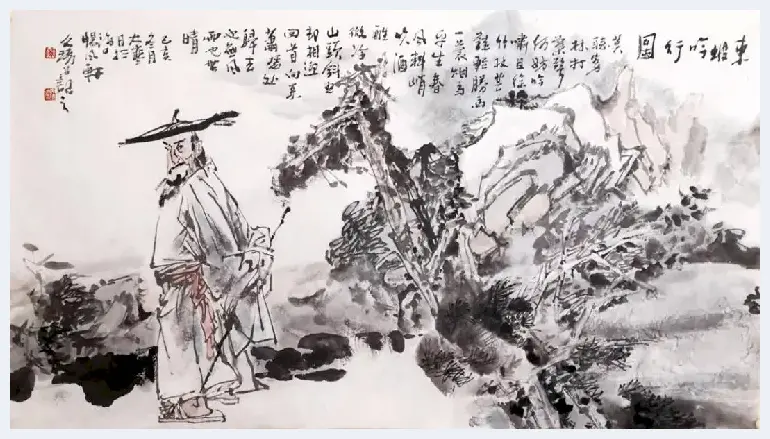 東坡吟行圖
莫
聽穿
林打
葉聲
何妨吟
嘯且徐
行竹杖芒
鞋輕勝馬
一蓑烟雨
平生春
風料峭
吹酒
醒
微冷
山頭斜照
却相迎
回首向來
蕭瑟處
歸去
也無風
雨也無
晴
己亥
冬月
大寒
日於